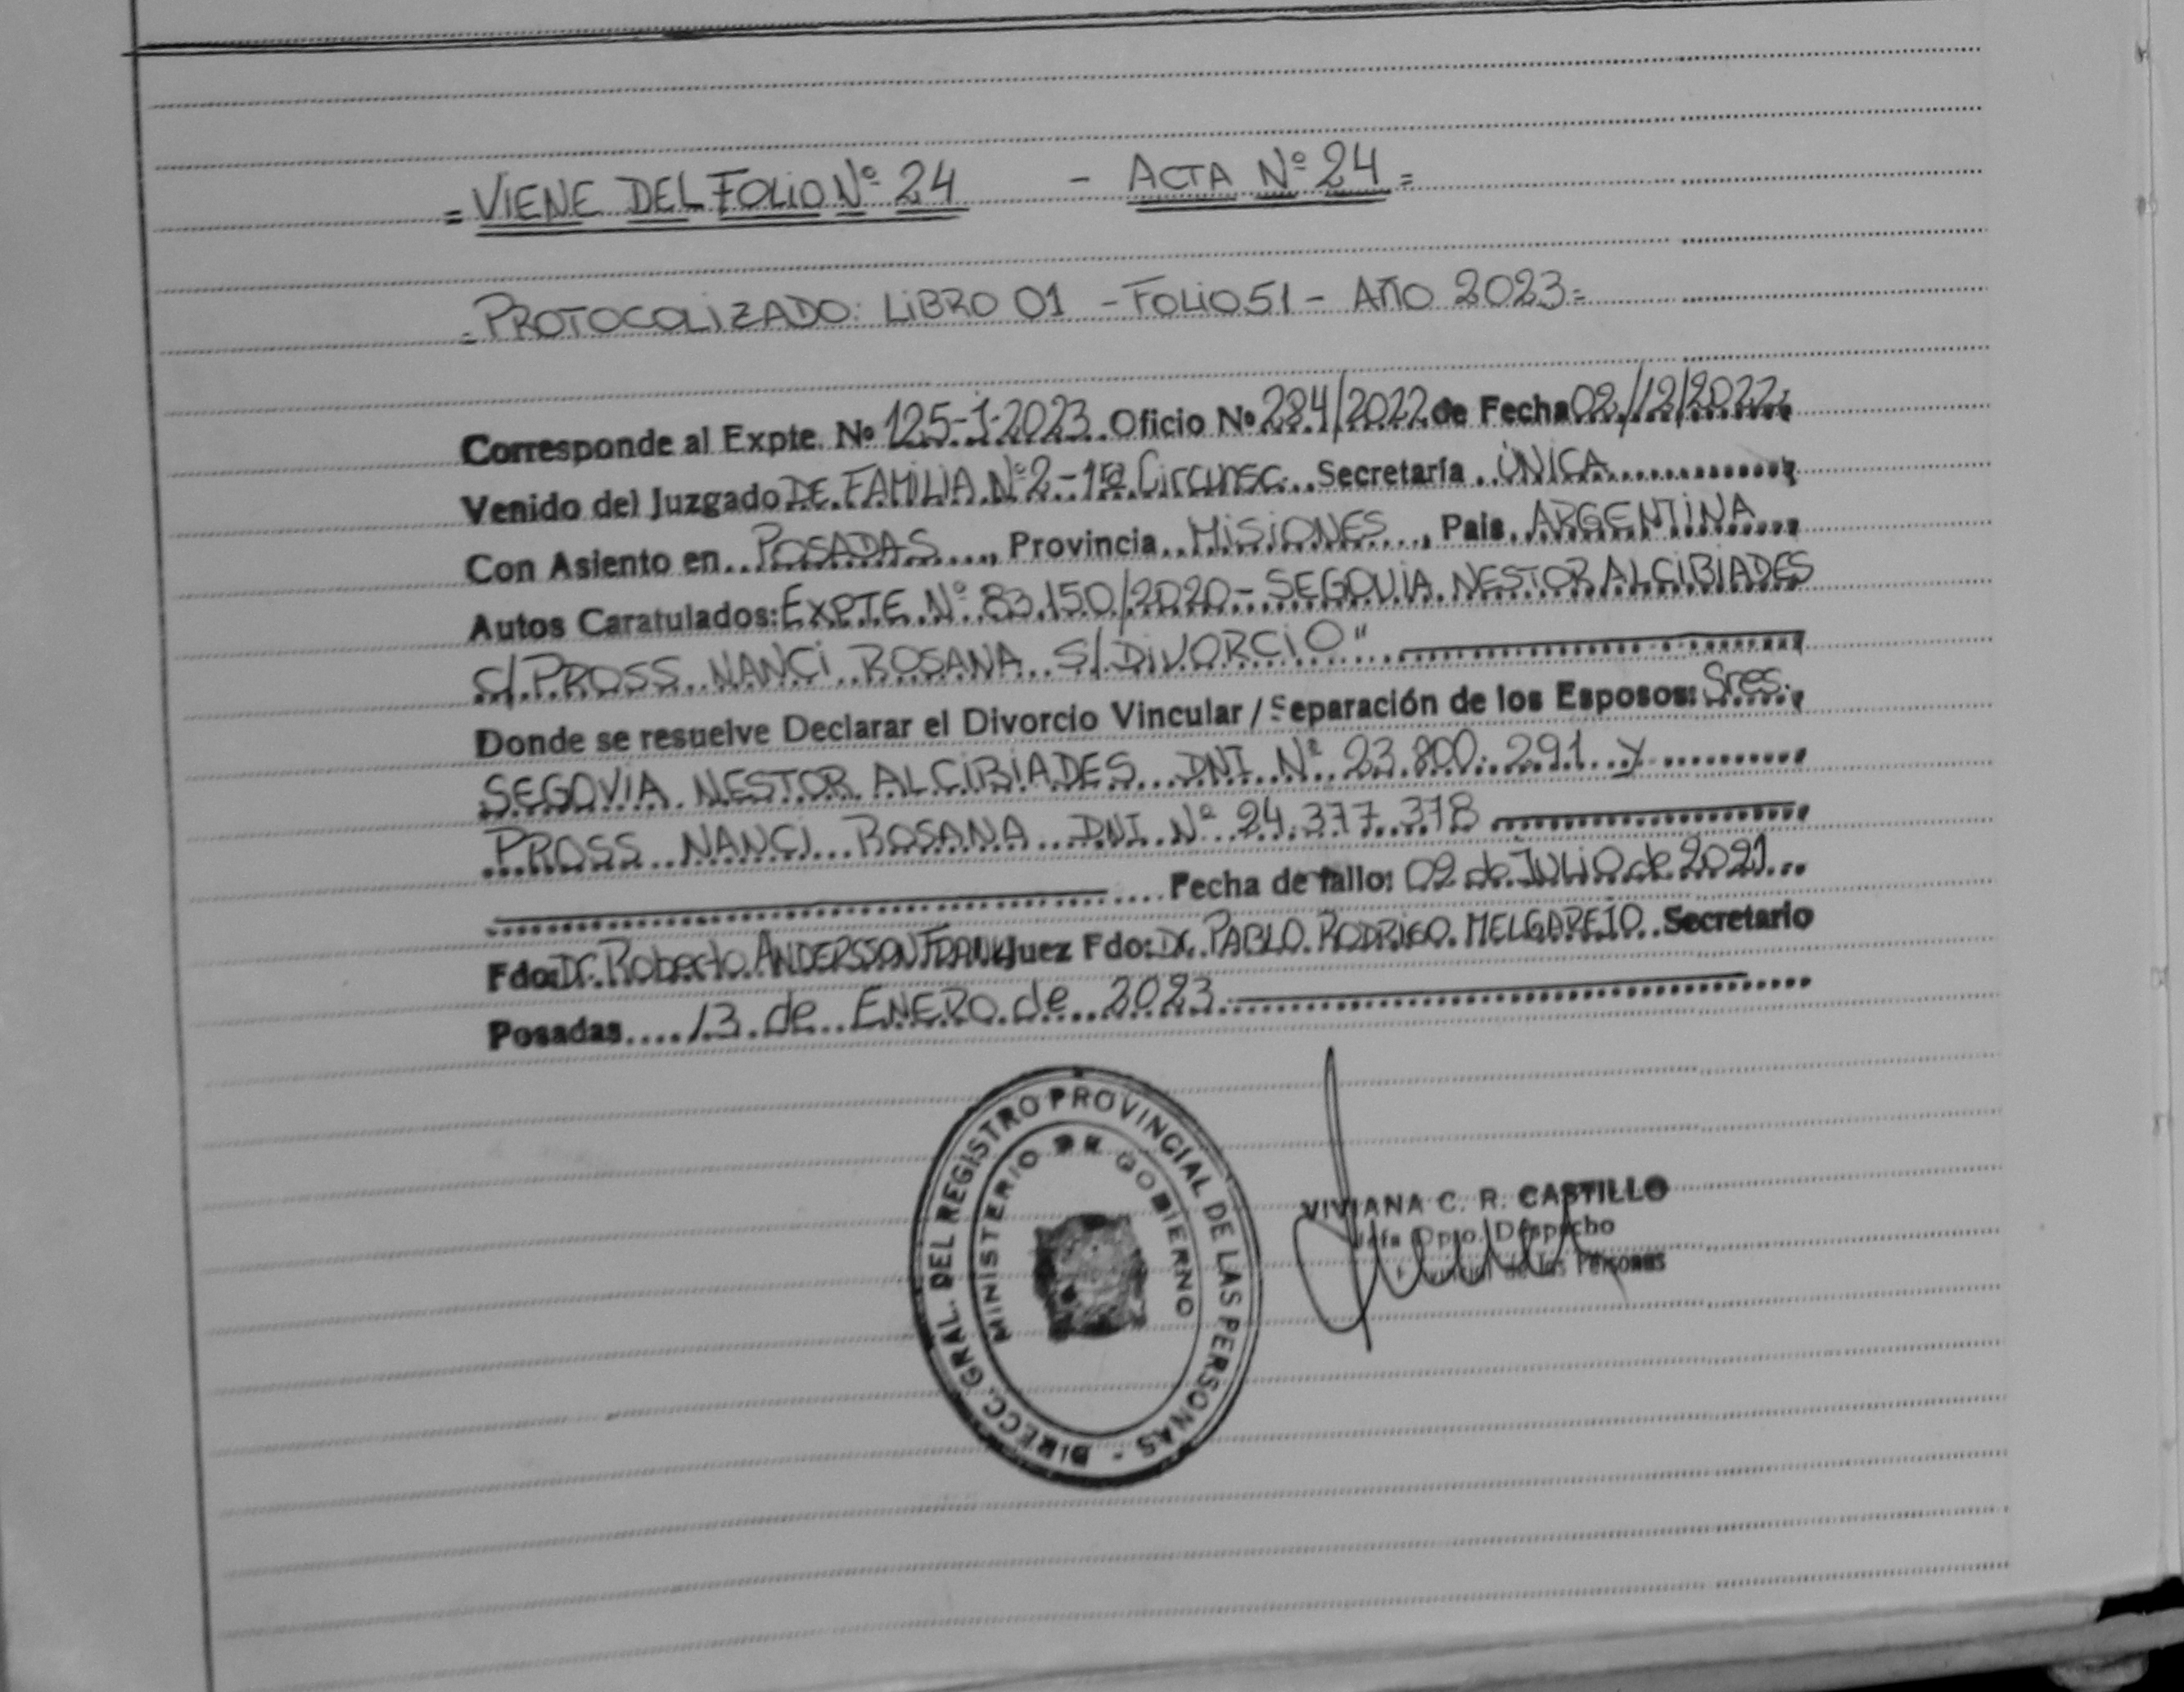 = VIENE DEL FOLIO Nº 24 - ACTA Nº 24 =
= PROTOCOLIZADO: LIBRO 01 - FOLIO 51 - AÑO 2023 =
Corresponde al Expte. Nº 125-1-2023 Oficio Nº 284/2022 de Fecha 02/12/2022
Venido del Juzgado DE FAMILIA Nº 2 - 1ra Circunsc. Secretaría ÚNICA
Con Asiento en POSADAS, Provincia MISIONES, Pais ARGENTINA
Autos Caratulados: EXPTE Nº 83.150/2020 - SEGOVIA NESTOR ALCIBIADES
C/ PROSS NANCI ROSANA S/ DIVORCIO"
Donde se resuelve Declarar el Divorcio Vincular / Separación de los Esposos: Sres.
SEGOVIA NESTOR ALCIBIADES DNI Nº 23.800.291 y
PROSS NANCI ROSANA DNI Nº 24.377.378
Fecha de fallo: 02 de JULIO de 2021
Fdo: Dr. Roberto ANDERSSON FRANK Juez Fdo: Dr. PABLO RODRIGO MELGAREJO Secretario
Posadas 13 de ENERO de 2023
DIRECC. GRAL. DEL REGISTRO PROVINCIAL DE LAS PERSONAS -
MINISTERIO DE GOBIERNO
VIVIANA C. R. CASTILLO
Jefa Dpto. Despacho
de las Personas